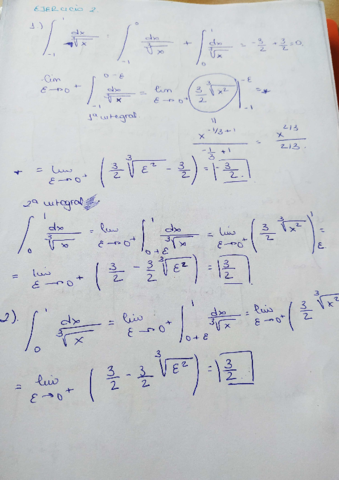 EJERCICIO 2
1.) ∫_{-1}^{1} dx/∛x = ∫_{-1}^{0} dx/∛x + ∫_{0}^{1} dx/∛x = -3/2 + 3/2 = 0
lim_{ε→0+} ∫_{-1}^{0-ε} dx/∛x = lim_{ε→0+} 3/2 ∛x² |_{-1}^{-ε} = *
1ª integral
x^{-1/3+1}/(-1/3+1) = x^{2/3}/(2/3)
* = lim_{ε→0+} (3/2 ∛ε² - 3/2) = -3/2
2ª integral
∫_{0}^{1} dx/∛x = lim_{ε→0+} ∫_{0+ε}^{1} dx/∛x = lim_{ε→0+} (3/2 ∛x²)_{ε}^{1} =
= lim_{ε→0+} (3/2 - 3/2 ∛ε²) = 3/2
2.) ∫_{0}^{1} dx/∛x = lim_{ε→0+} ∫_{0+ε}^{1} dx/∛x = lim_{ε→0+} (3/2 ∛x²
= lim_{ε→0+} (3/2 - 3/2 ∛ε²) = 3/2